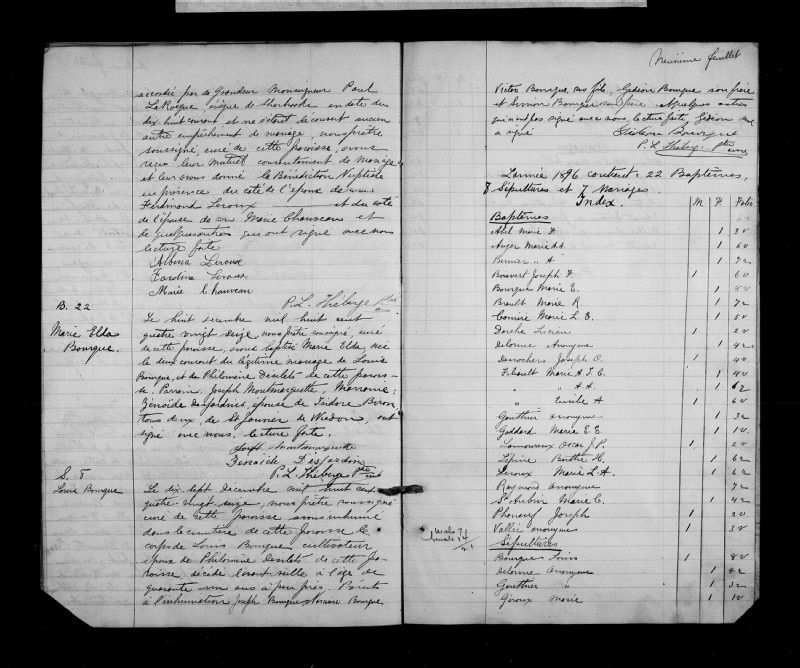 accordée par sa Grandeur Monseigneur Paul
LaRocque évêque de Sherbrooke en date du
dix huit courant et ne s'étant découvert aucun
autre empêchement de mariage, nous prêtre
soussigné, curé de cette paroisse, avons
reçu leur mutuel consentement de mariage
et leur avons donné la Bénédiction Nuptiale
en présence du côté de l'époux de
Ferdinand Leroux et du côté
de l'épouse de Marie Chauveau et
de quelques autres qui ont signé avec nous
lecture faite
Albina Leroux
Caroline Leroux
Marie Chauveau
P.L. Théberge Ptre
B. 22
Marie Elda
Bourque.
Le huit decembre mil huit cent
quatre vingt seize, nous prêtre soussigné, curé
de cette paroisse, avons baptisé Marie Elda, née
le deux courant du légitime mariage de Louis
Bourque, et de Philomène Desilets de cette parois-
se. Parrain Joseph Montmarquette, Marraine:
Zénoïde Desjardins, épouse de Isidore Biron,
tous deux, de St Janvier de Weedon, ont
signé avec nous, lecture faite.
Joseph Montmarquette
Zenoïde Desjardin
P.L. Théberge Ptre
S. 8
Louis Bourque
Le dix sept décembre mil huit cent
quatre-vingt seize, nous prêtre soussigné
curé de cette paroisse avons inhumé
dans le cimetière de cette paroisse le
corps de Louis Bourque, cultivateur
époux de Philomène Desilets de cette pa-
roisse, décédé l'avant veille à l'âge de
quarante un ans à peu près. Présents
à l'inhumation Joseph Bourque Narcisse Bourque
Neuvième feuillet
Victor Bourque, ses fils, Gédéon Bourque son frère
et Simon Bourque son frère et quelques autres
qui n'ont pas signé avec nous, lecture faite, Gédéon seul
a signé
Gédéon Bourque
P.L. Théberge Ptre
curé
L'année 1896 contient 22 Baptêmes,
8 Sépultures et 7 Mariages.
Index.
M F Folio
Baptêmes
Abel Marie F. 1 3v
Auger Marie A.A. 1 6v
Bernier " A 1 7r
Boisvert Joseph F. 1 6v
Bourque Marie E. 1 8v
Brault Marie R. 1 7r
Comiré Marie L. E. 1 5v
Doiche Lucien 1 2v
Delorme Anonyme 1 4r
Desrochers Joseph O. 1 4v
Filiault Marie A.J.E. 1 4v
" " A.A. 1 6r
" Emile A 1 6v
Gauthier Anonyme 1 3r
Goddard Marie E.E. 1 1v
Lamoureux Oscar J.P. 1 2v
Lépine Berthe H. 1 6r
Leroux Marie L.A. 1 6r
Raymond anonyme 7r
St Aubin Marie C. 1 4r
Phaneuf Joseph 1 2v
Vallée anonyme 1 3v
Sépultures
Bourque Louis 1 8v
Delorme Anonyme 1 4r
Gauthier " 1 3r
Giroux Marie 1 1v